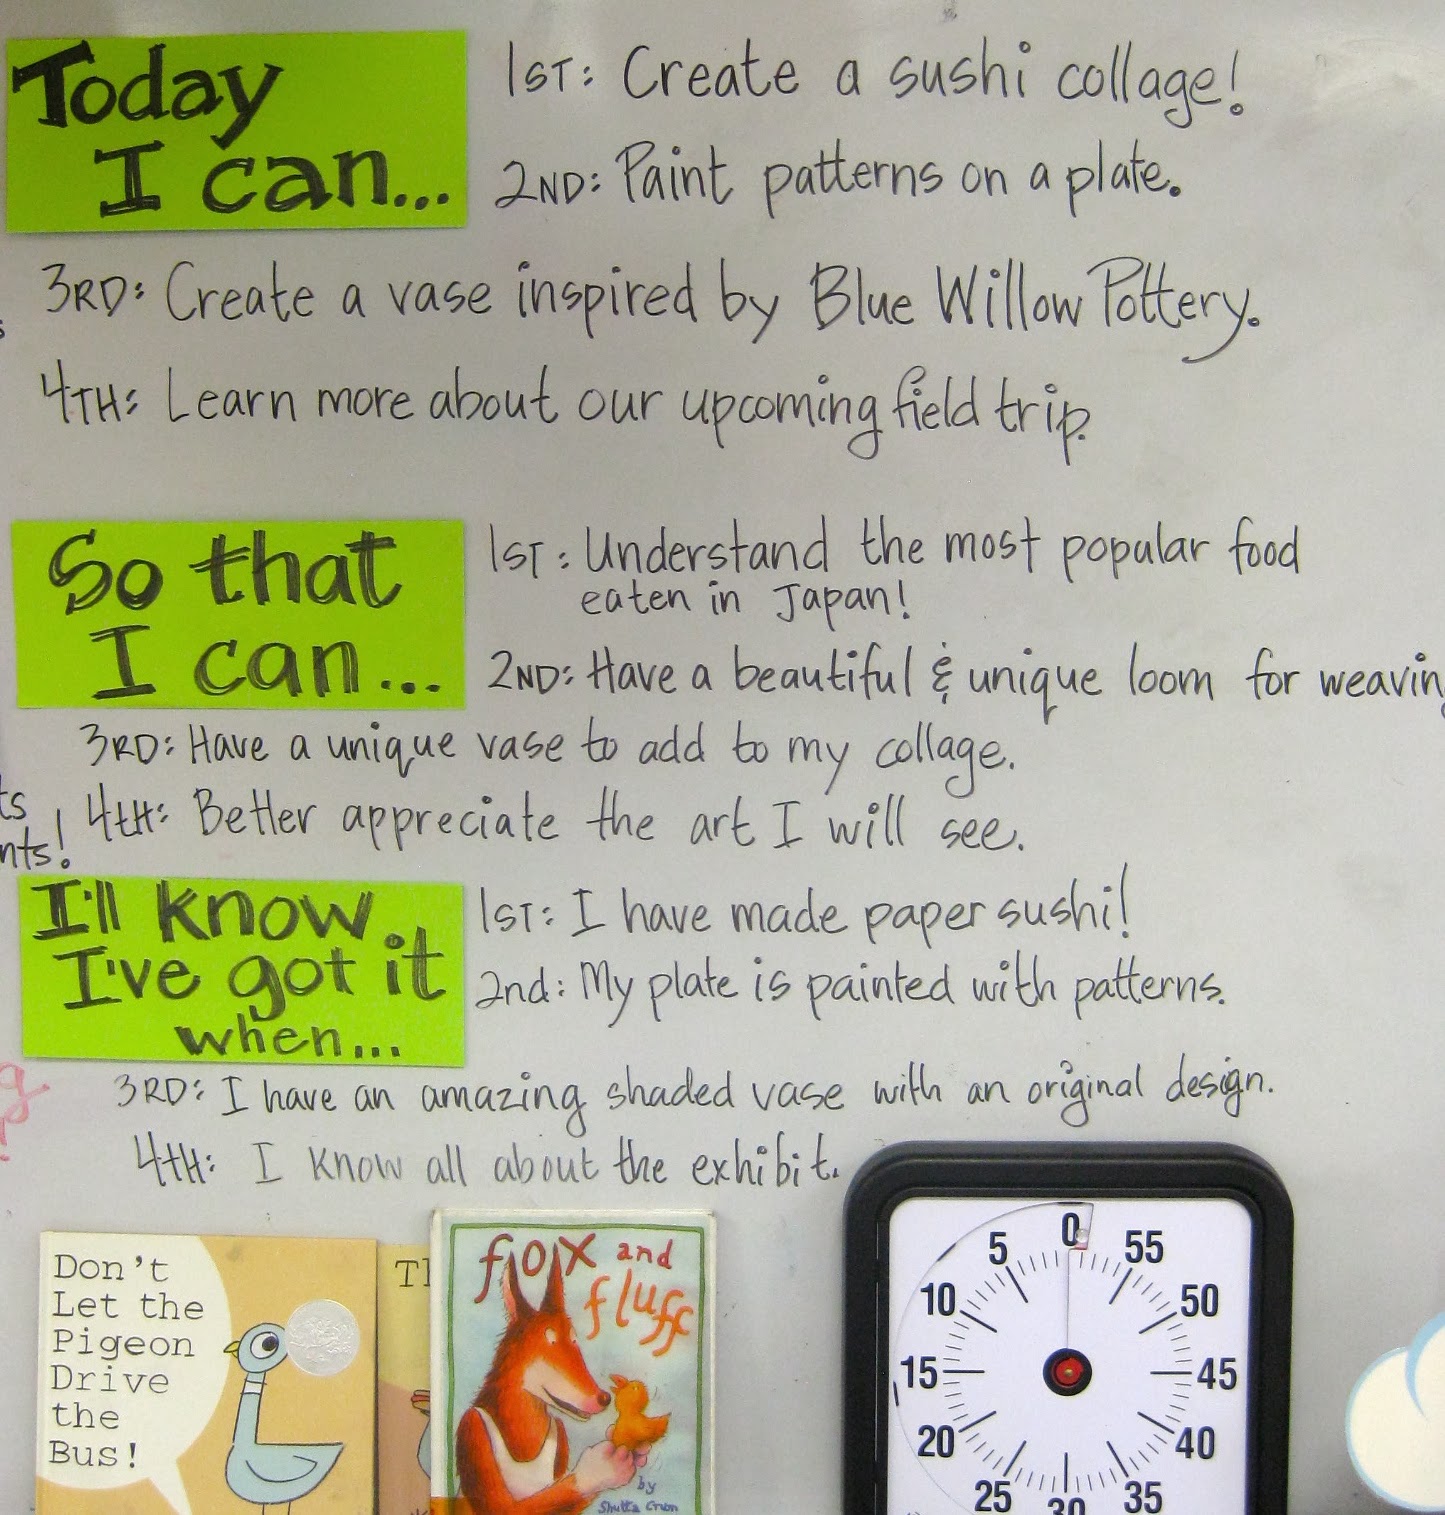 Today
I can...
1ST: Create a sushi collage!
2ND: Paint patterns on a plate.
3RD: Create a vase inspired by Blue Willow Pottery.
4TH: Learn more about our upcoming field trip.
So that
I can...
1ST: Understand the most popular food
eaten in Japan!
2ND: Have a beautiful & unique loom for weavin
3RD: Have a unique vase to add to my collage.
4tH: Better appreciate the art I will see.
ts
nts!
I'll know
I've got it
when...
1ST: I have made paper sushi!
2nd: My plate is painted with patterns.
3RD: I have an amazing shaded vase with an original design.
4tH: I know all about the exhibit.
Don't
Let the
Pigeon
Drive
the
Bus!
fox and
fluff
by
0
5
10
15
20
25
30
35
40
45
50
55